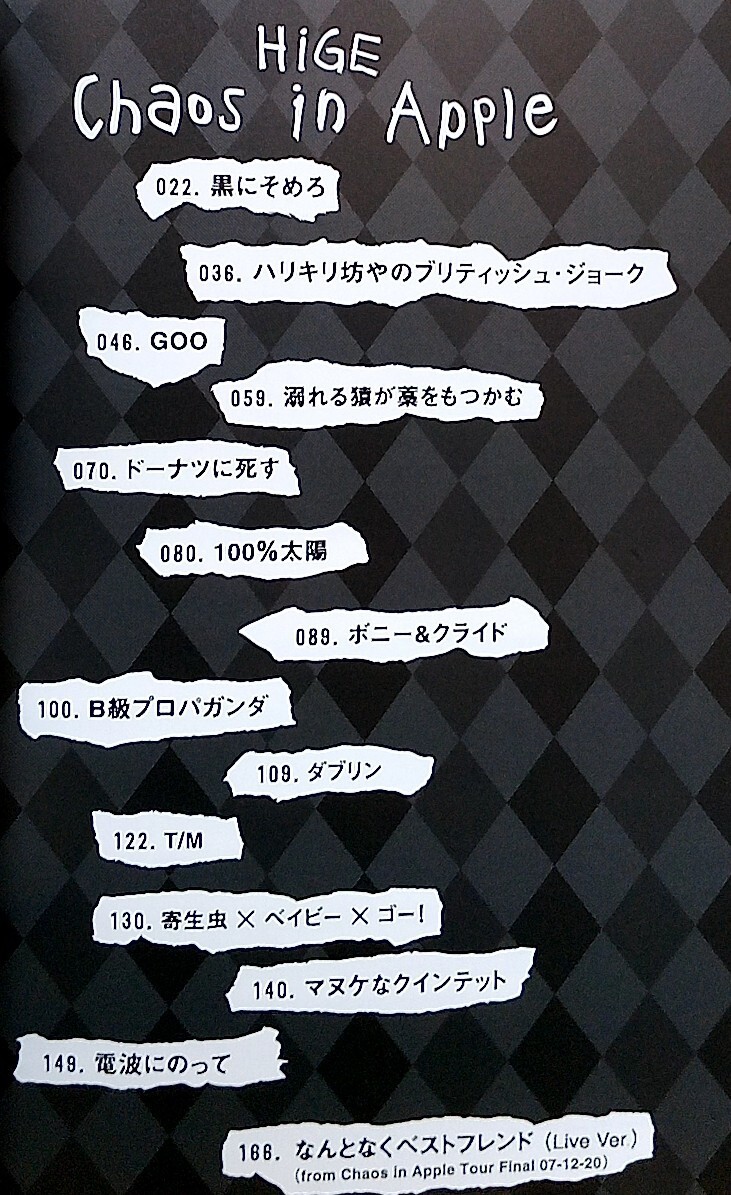 HiGE
Chaos in Apple
022. 黒にそめろ
036. ハリキリ坊やのブリティッシュ・ジョーク
046. GOO
059. 溺れる猿が藁をもつかむ
070. ドーナツに死す
080. 100%太陽
089. ボニー&クライド
100. B級プロパガンダ
109. ダブリン
122. T/M
130. 寄生虫 × ベイビー × ゴー!
140. マヌケなクインテット
149. 電波にのって
166. なんとなくベストフレンド (Live Ver.)
(from Chaos in Apple Tour Final 07-12-20)